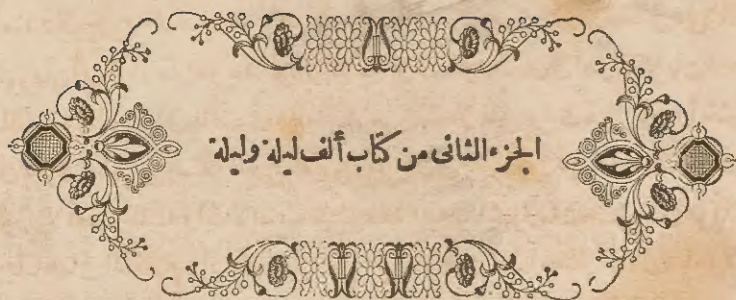 الجزء الثانى من كتاب ألف ليلة وليلة